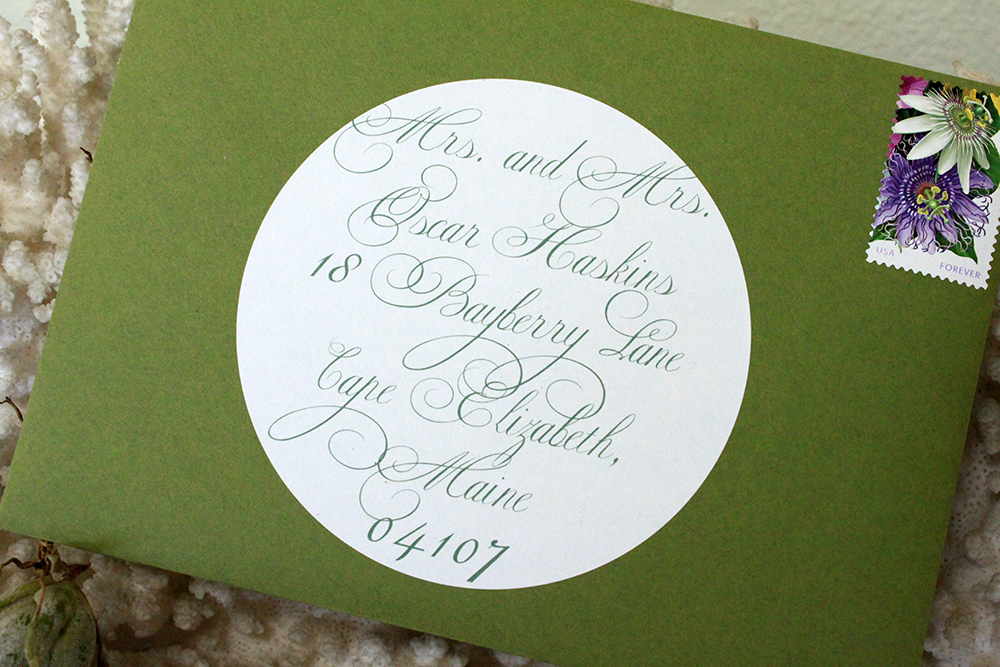 Mrs. and Mrs.
Oscar Haskins
18 Bayberry Lane
Cape Elizabeth,
Maine
04107
USA FOREVER